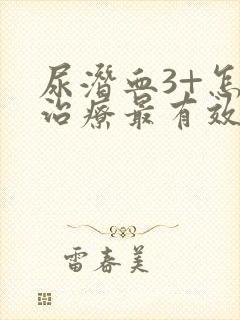 尿潜血3+怎
治疗最有效
雷春美